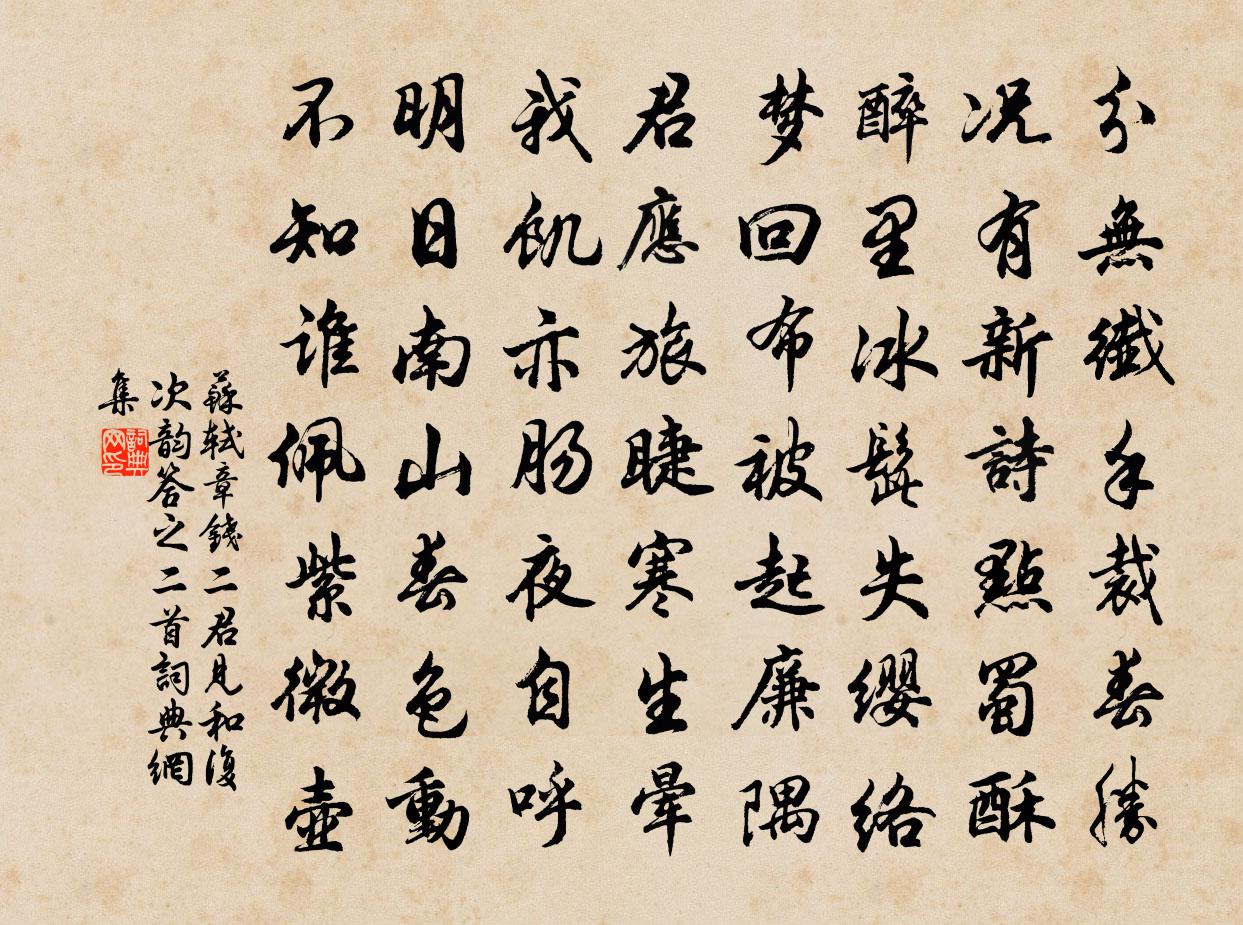 分無纖手裁春勝
况有新詩點蜀酥
醉里冰髭失缨络
梦回布被起廉隅
君應旅睫寒生暈
我飢亦肠夜自呼
明日南山春色動
不知谁佩紫微壺
蘇軾章錢二君見和復
次韵答之二首詞典網
集
詞典网印